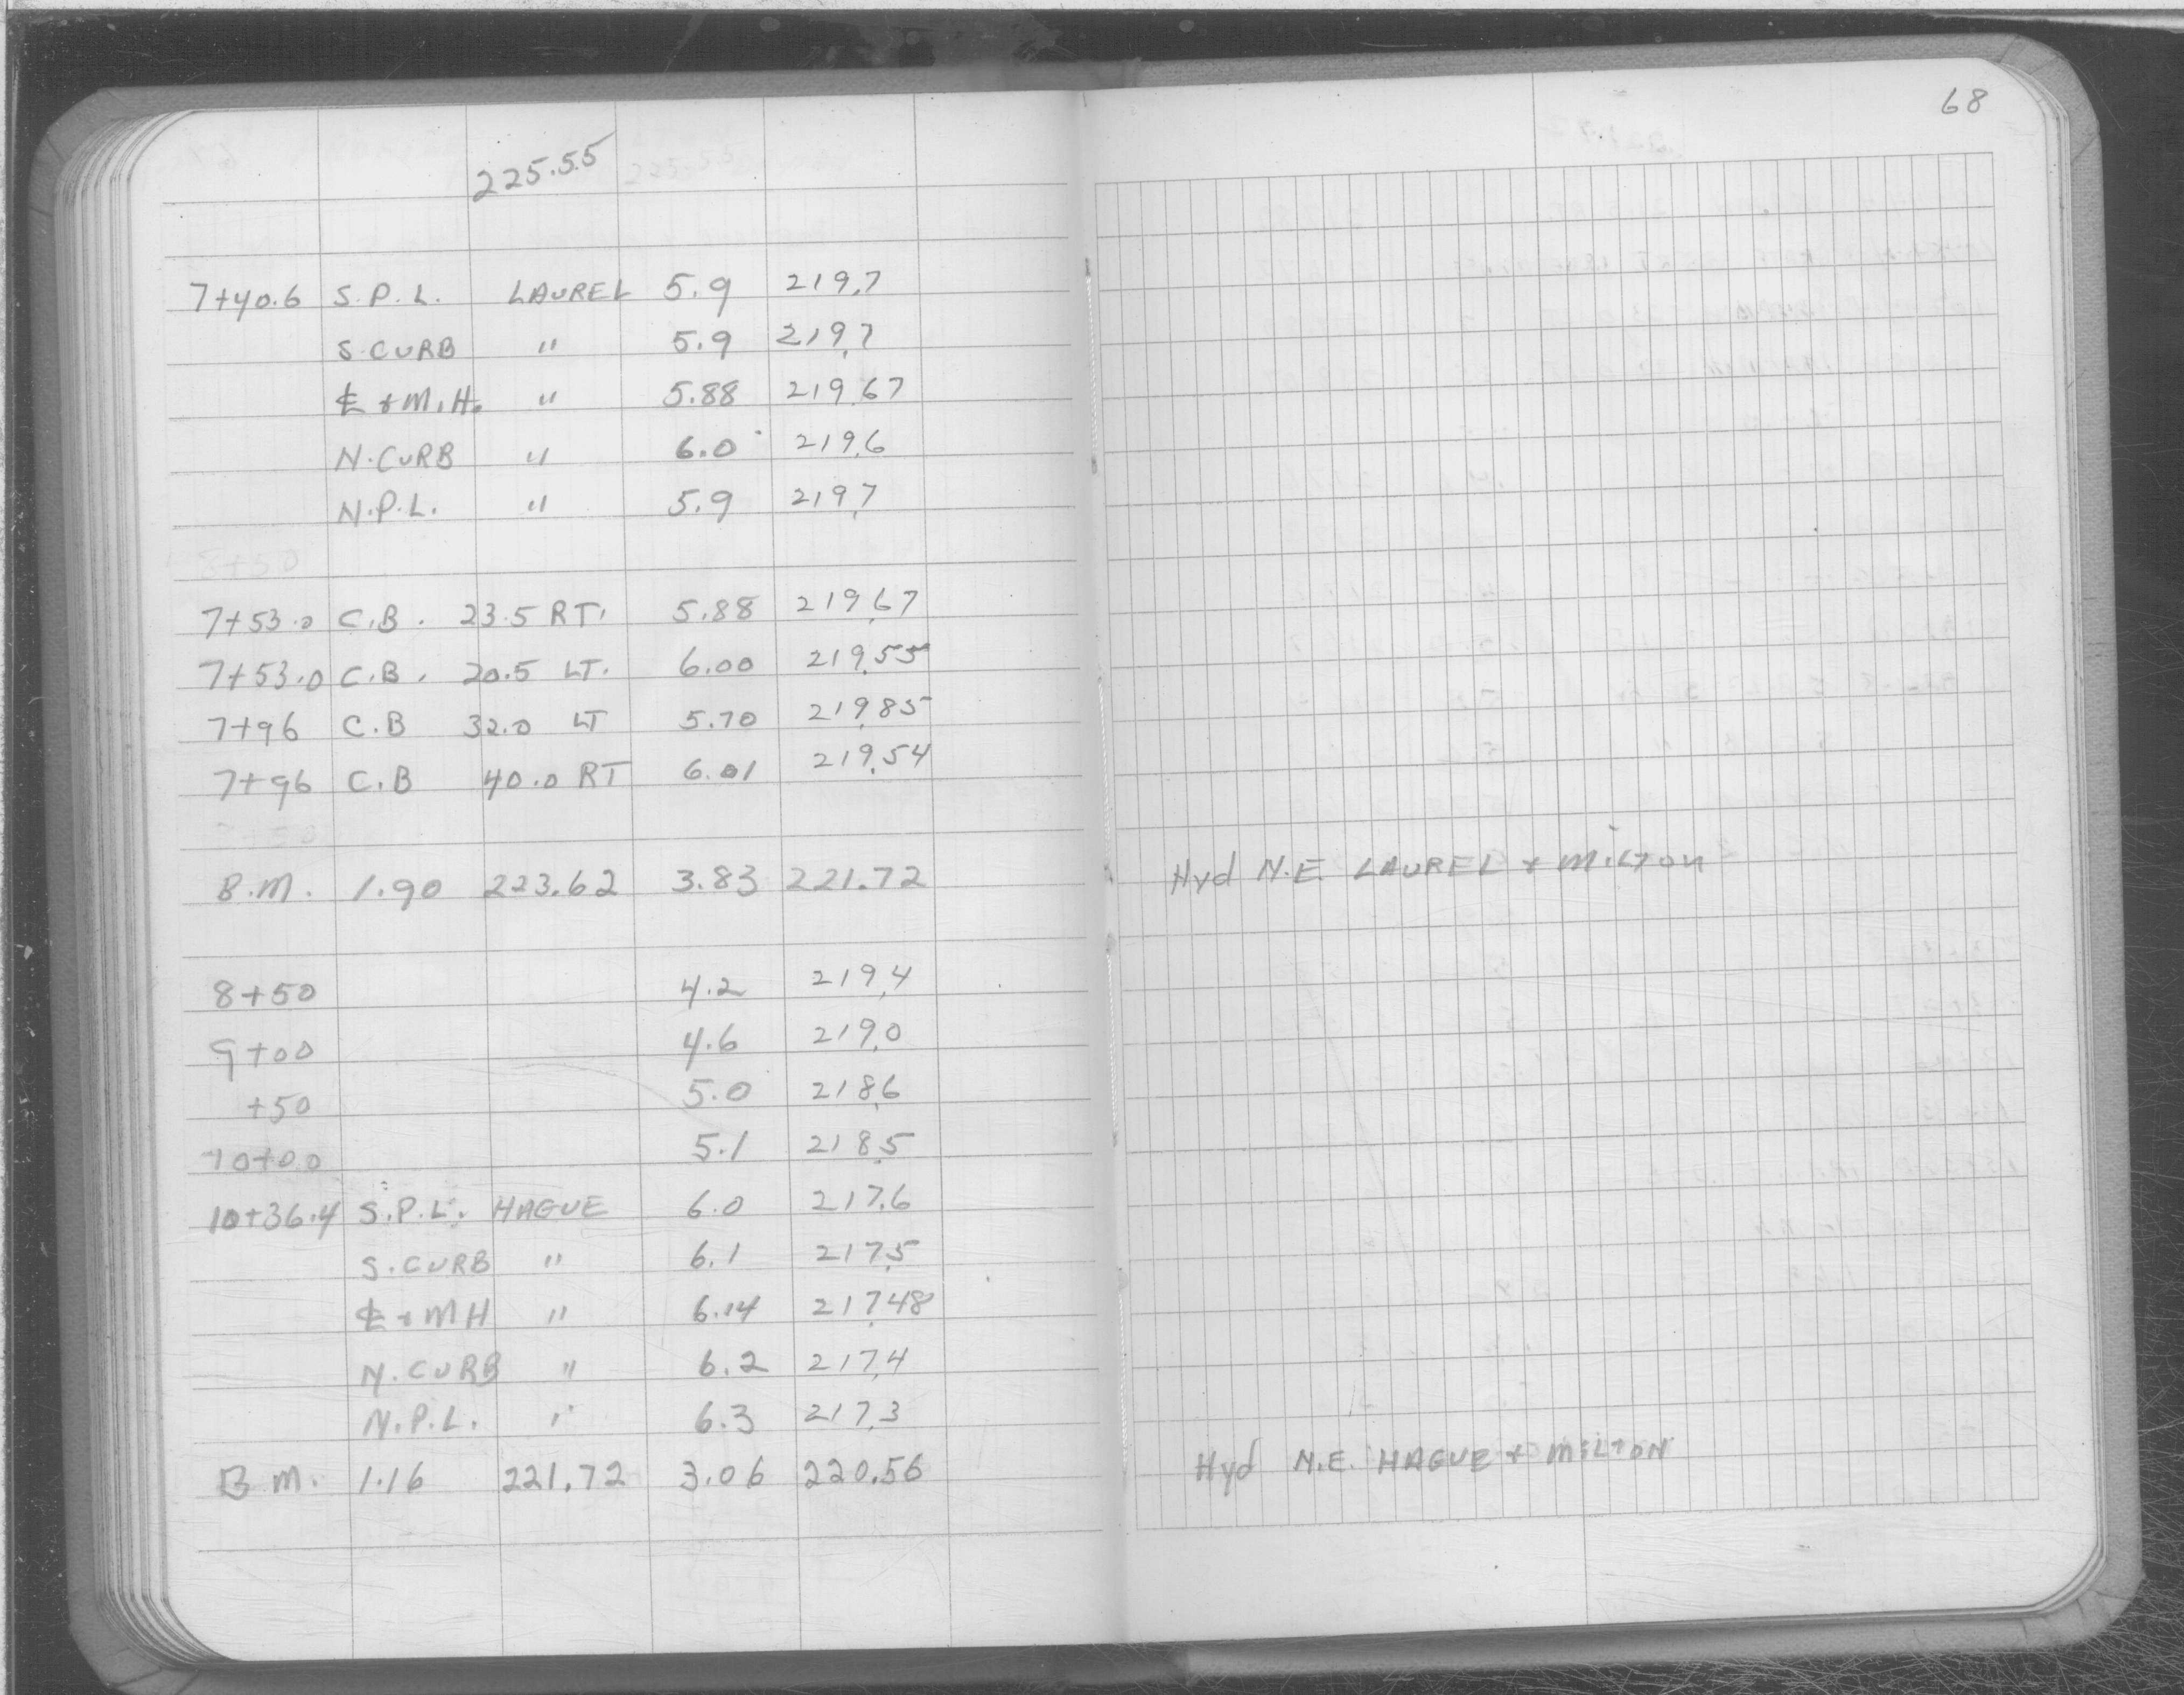 68
225.55
7+40.6 S.P.L. LAUREL 5.9 219.7
S.CURB " 5.9 219.7
℄ + M.H. " 5.88 219.67
N.CURB " 6.0 219.6
N.P.L. " 5.9 219.7
8+50
7+53.0 C.B. 23.5 RT. 5.88 219.67
7+53.0 C.B. 20.5 LT. 6.00 219.55
7+96 C.B 32.0 LT 5.70 219.85
7+96 C.B 40.0 RT 6.01 219.54
B.M. 1.90 223.62 3.83 221.72 Hyd N.E. LAUREL + MILTON
8+50 4.2 219.4
9+00 4.6 219.0
+50 5.0 218.6
10+00 5.1 218.5
10+36.4 S.P.L. HAGUE 6.0 217.6
S.CURB " 6.1 217.5
℄ + MH " 6.14 217.48
N.CURB " 6.2 217.4
N.P.L. " 6.3 217.3
B.M. 1.16 221.72 3.06 220.56 Hyd N.E. HAGUE + MILTON